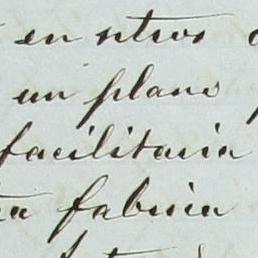 en otros
un plano
facilitaria
fabrica